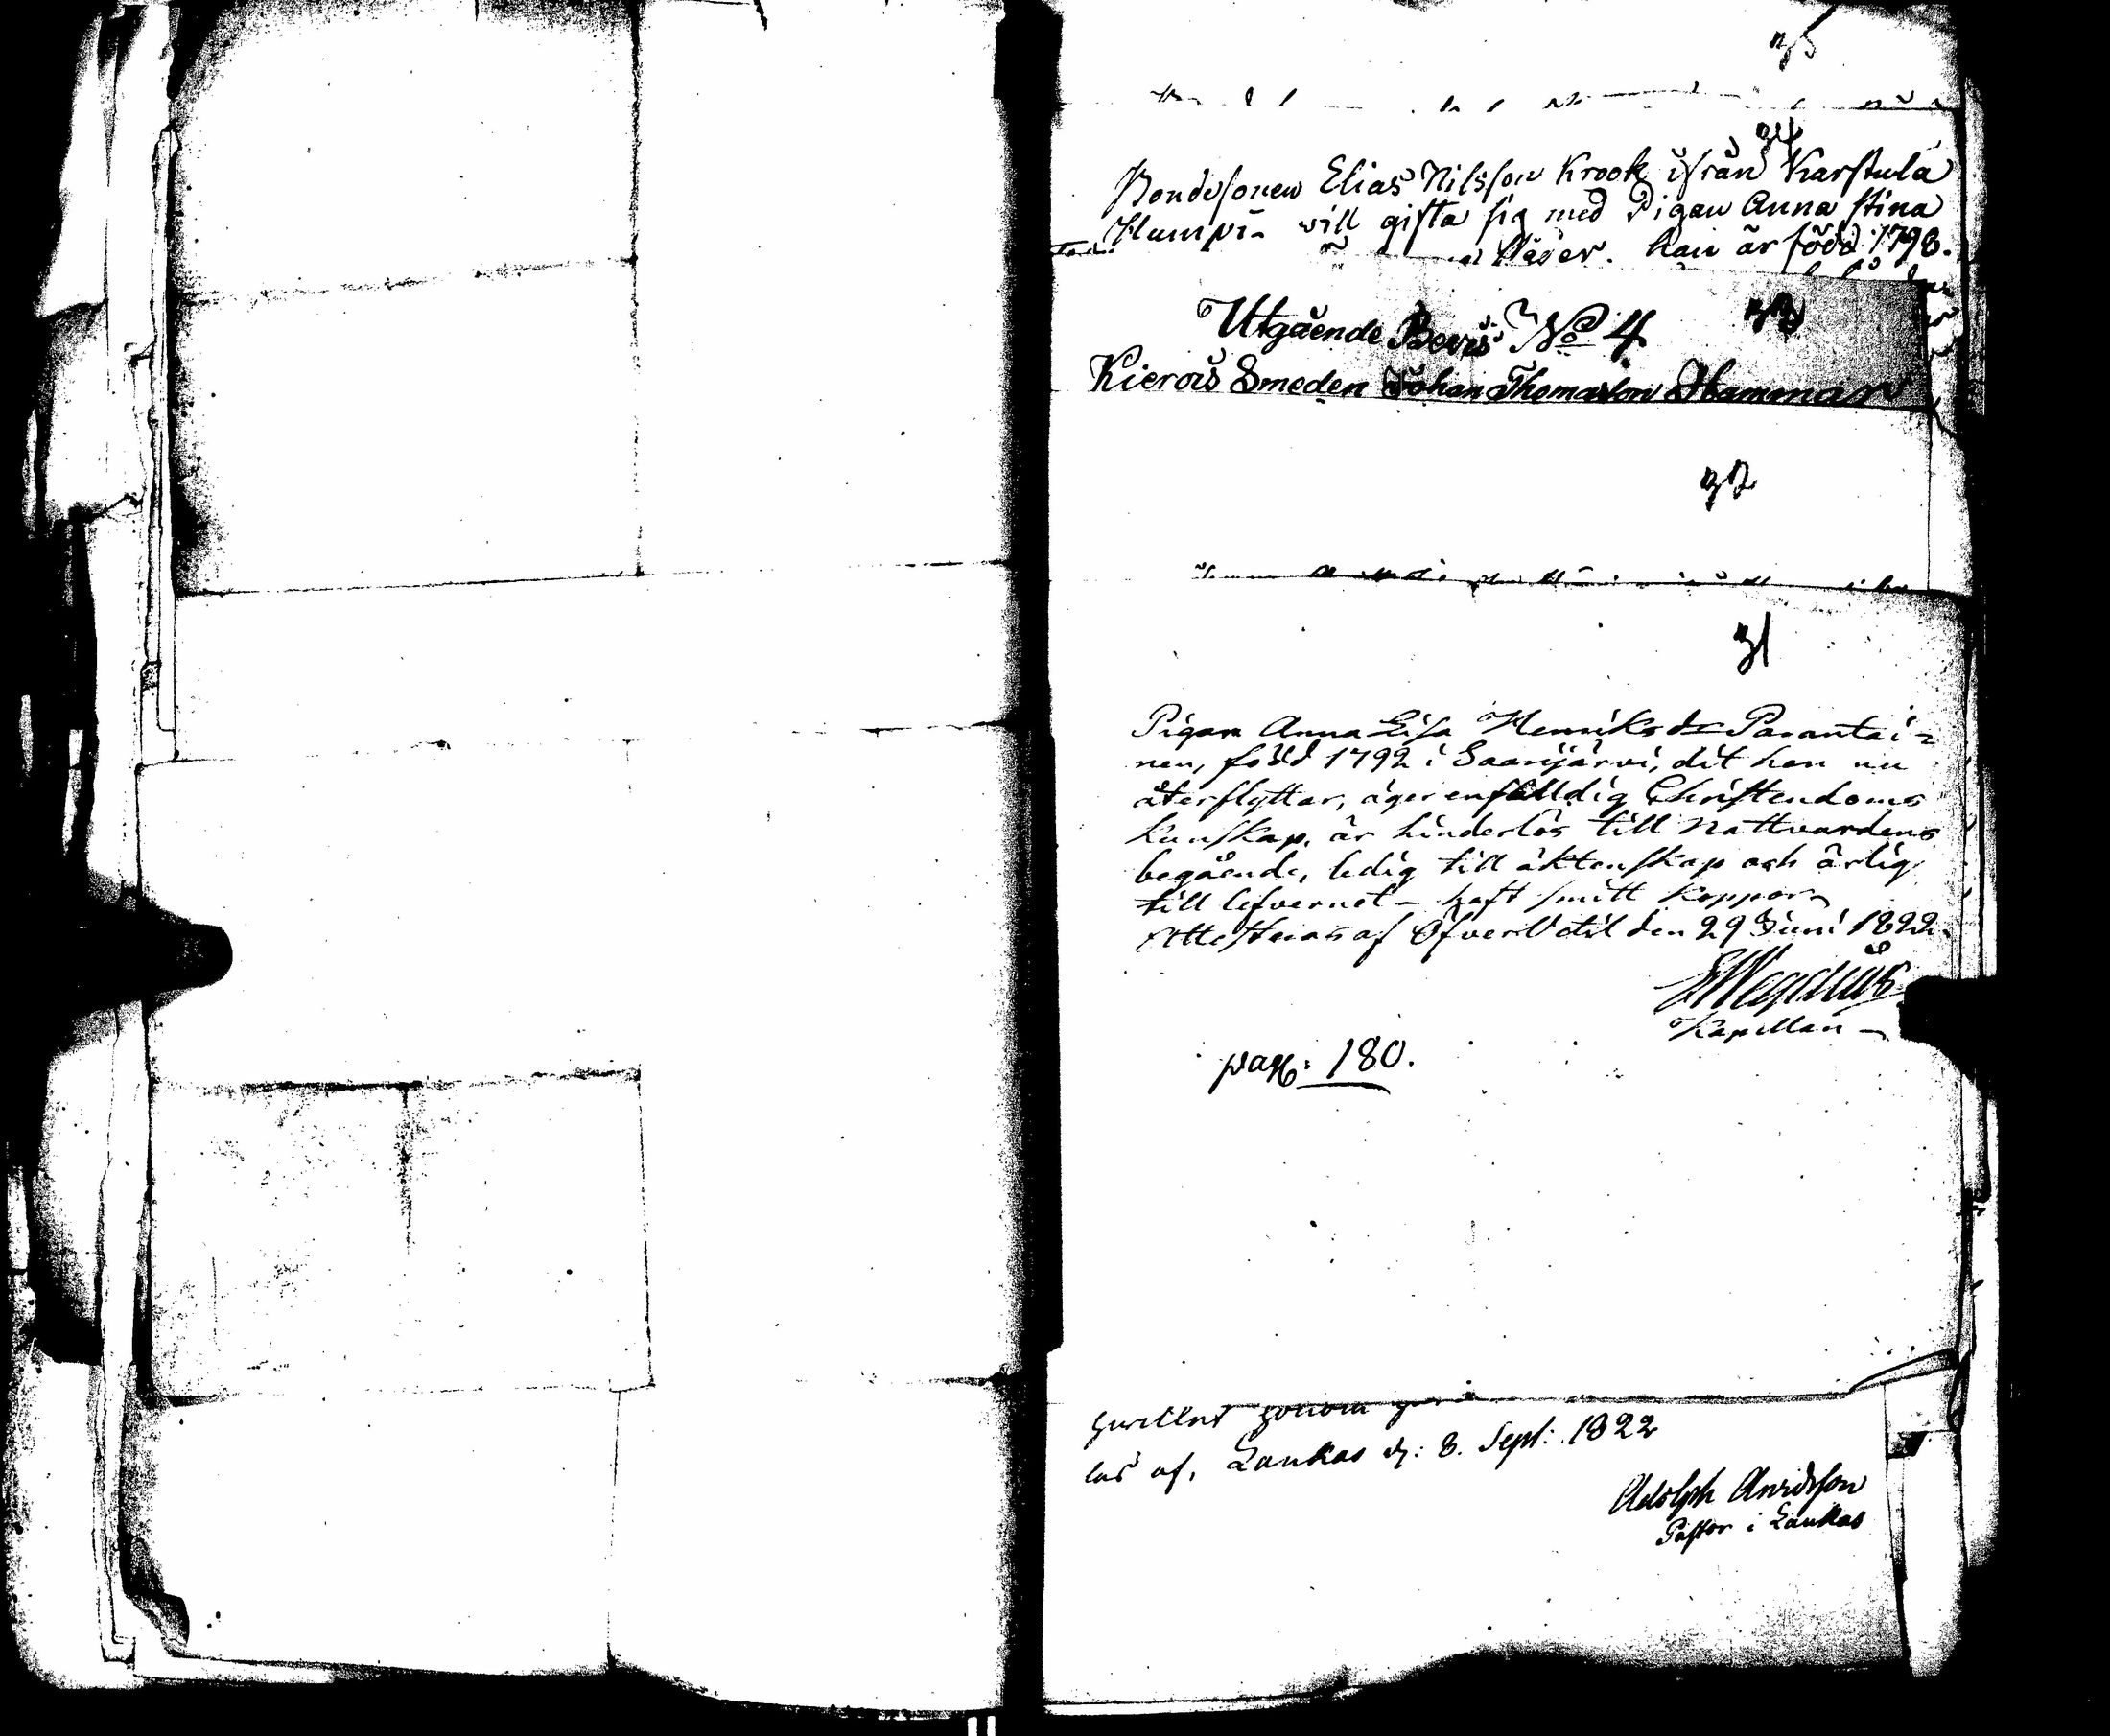 35
34
Bondesonen Elias Nilsson Krook ifrån Karstula
will gifta sig med Pigan Anna Stina
läser. han är född 1798.
33
Utgående Bevis No 4
Kierois Smeden Johan Thomasson Hammar
32
31
Pigan Anna Lisa Henriksdr Parantai-
nen, född 1792 i Saarijärvi, dit hon nu
återflyttar, äger enfalldig Christendoms
kunskap, är hinderlös till Nattvardens
begående, ledig till äktenskap och ärlig
till lefvernet – haft smitt koppor
Attesteras af ÖfverVetil den 29 Juni 1822.
Kapellan
pag: 180.
genom
las af, Laukas d: 8. Sept: 1822
Adolph
Pastor i Laukas